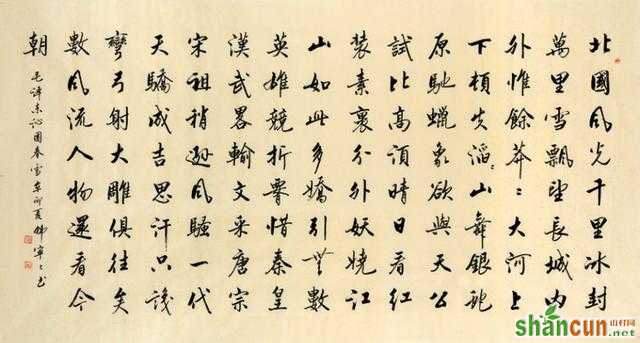 北國風光千里冰封
萬里雪飄望長城内
外惟餘莽〻大河上
下頓失滔〻山舞銀蛇
原馳蠟象欲與天公
試比高須晴日看紅
装素裹分外妖嬈江
山如此多嬌引無數
英雄競折腰惜秦皇
漢武畧輸文采唐宗
宋祖稍遜風騷一代
天驕成吉思汗只識
彎弓射大雕俱往矣
數風流人物還看今
朝
毛澤東沁園春雪辛卯夏
shancun 山村网
.net